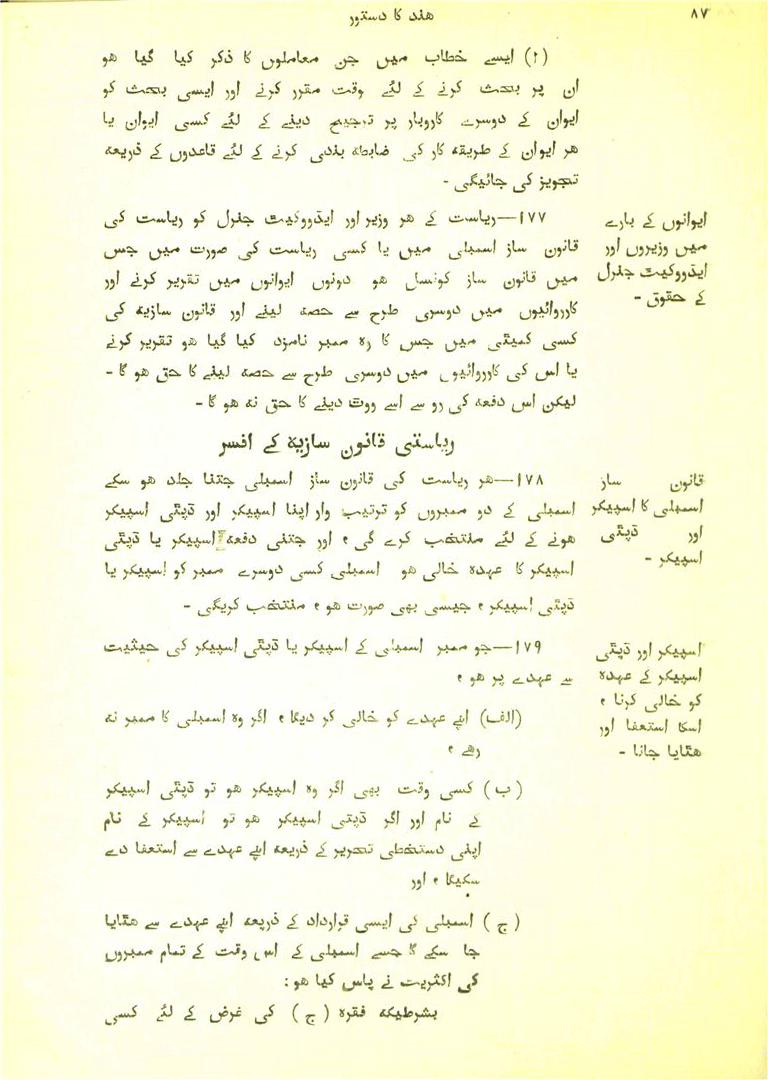 هند کا دستور
۸۷
(۲) ایسے خطاب میں جن معاملوں کا ذکر کیا گیا هو
ان پر بحث کرنے کے لئے وقت مقرر کرنے اور ایسی بحث کو
ایوان کے دوسرے کاروبار پر ترجیح دینے کے لئے کسی ایوان یا
هر ایوان کے طریقه کار کی ضابطه بندی کرنے کے لئے قاعدوں کے ذریعه
تجویز کی جائیگی -
ایوانوں کے بارے
میں وزیروں اور
ایڈووکیٹ جنرل
کے حقوق -
۱۷۷—ریاست کے هر وزیر اور ایڈووکیٹ جنرل کو ریاست کی
قانون ساز اسمبلی میں یا کسی ریاست کی صورت میں جس
میں قانون ساز کونسل هو دونوں ایوانوں میں تقریر کرنے اور
کارروائیوں میں دوسری طرح سے حصه لینے اور قانون سازیه کی
کسی کمیٹی میں جس کا وه ممبر نامزد کیا گیا هو تقریر کرنے
یا اس کی کارروائیوں میں دوسری طرح سے حصه لینے کا حق هو گا -
لیکن اس دفعه کی رو سے اسے ووٹ دینے کا حق نه هو گا -
ریاستی قانون سازیه کے افسر
قانون ساز
اسمبلی کا اسپیکر
اور ڈپٹی
اسپیکر -
۱۷۸—هر ریاست کی قانون ساز اسمبلی جتنا جلد هو سکے
اسمبلی کے دو ممبروں کو ترتیب وار اپنا اسپیکر اور ڈپٹی اسپیکر
هونے کے لئے منتخب کرے گی ، اور جتنی دفعه اسپیکر یا ڈپٹی
اسپیکر کا عهده خالی هو اسمبلی کسی دوسرے ممبر کو اسپیکر یا
ڈپٹی اسپیکر ، جیسی بھی صورت هو ، منتخب کریگی -
اسپیکر اور ڈپٹی
اسپیکر کے عهده
کو خالی کرنا ،
اسکا استعفا اور
هٹایا جانا -
۱۷۹—جو ممبر اسمبلی کے اسپیکر یا ڈپٹی اسپیکر کی حیثیت
سے عهدے پر هو ،
(الف) اپنے عهدے کو خالی کر دیگا ، اگر وه اسمبلی کا ممبر نه
رهے ،
(ب) کسی وقت بھی اگر وه اسپیکر هو تو ڈپٹی اسپیکر
کے نام اور اگر ڈپٹی اسپیکر هو تو اسپیکر کے نام
اپنی دستخطی تحریر کے ذریعه اپنے عهدے سے استعفا دے
سکیگا ، اور
(ج) اسمبلی کی ایسی قرارداد کے ذریعه اپنے عهدے سے هٹایا
جا سکے گا جسے اسمبلی کے اس وقت کے تمام ممبروں
کی اکثریت نے پاس کیا هو :
بشرطیکه فقره (ج) کی غرض کے لئے کسی